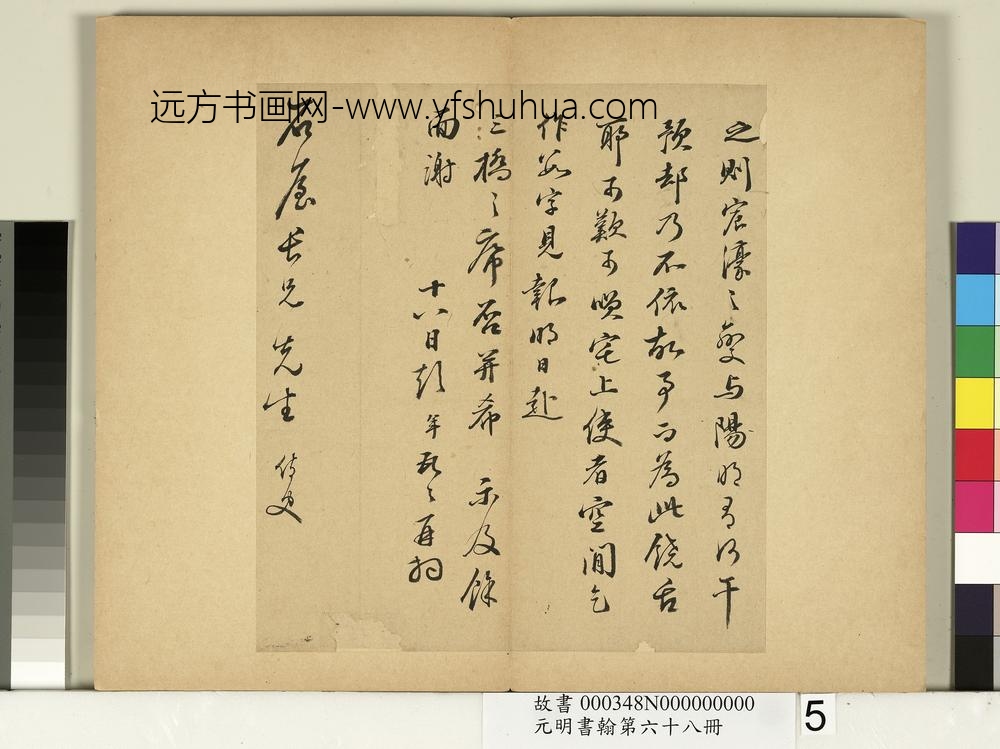 远方书画网-www.yfshuhua.com
之則宸濠之變與陽明有何干
預却乃不依故事而為此饒舌
耶可歎可嘆宅上使者空閒乞
作數字見報明日赴
三橋之席否并希 示及餘
面謝
十八日彭年頓頓再拜
長兄先生 侍史
故書 000348N000000000
元明書翰第六十八冊
5